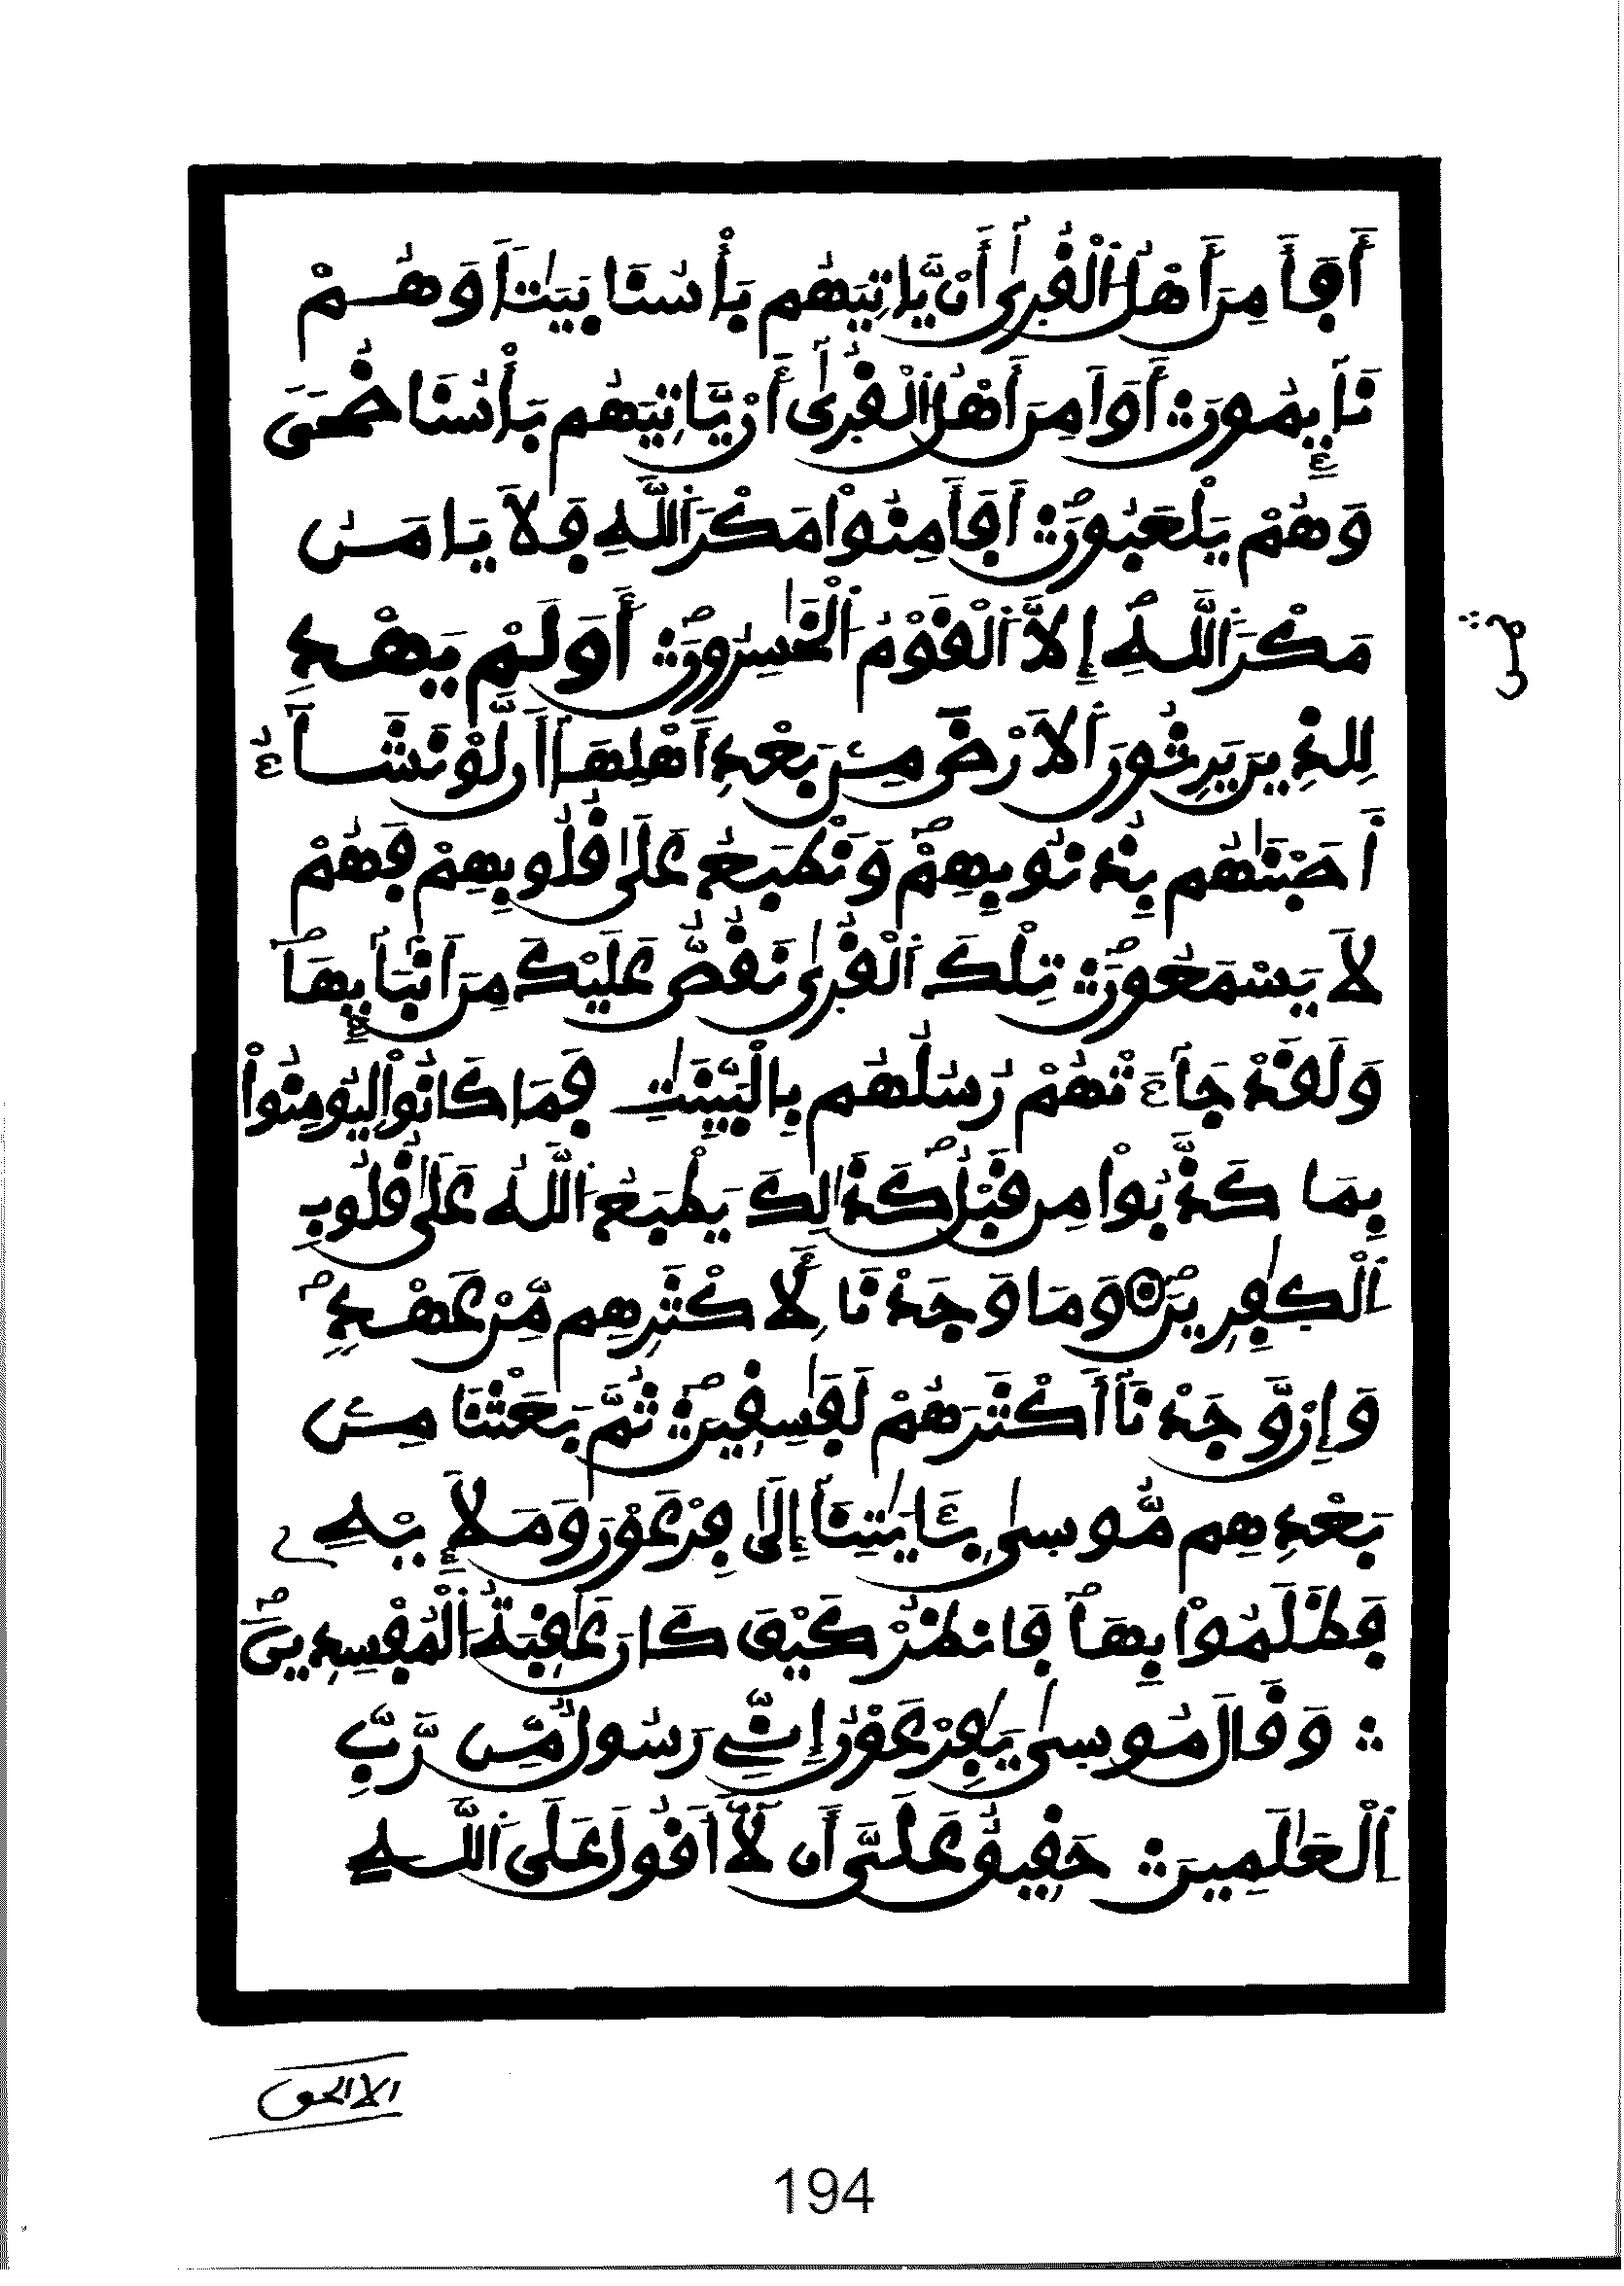 أَفَأَمِنَ أَهْلُ ٱلْقُرَىٰٓ أَنْ يَّاتِيَهُم بَأْسُنَا بَيَٰتاً وَهُمْ
نَآئِمُونَ ۞ أَوَامِنَ أَهْلُ ٱلْقُرَىٰٓ أَنْ يَّاتِيَهُم بَأْسُنَا ضُحىً
وَهُمْ يَلْعَبُونَ ۞ أَفَأَمِنُواْ مَكْرَ ٱللَّهِ فَلَا يَامَنُ
مَكْرَ ٱللَّهِ إِلَّا ٱلْقَوْمُ ٱلْخَٰسِرُونَ ۞ أَوَلَمْ يَهْدِ
لِلذِينَ يَرِثُونَ ٱلَارْضَ مِنۢ بَعْدِ أَهْلِهَآ أَن لَّوْ نَشَآءُ
أَصَبْنَٰهُم بِذُنُوبِهِمْ وَنَطْبَعُ عَلَىٰ قُلُوبِهِمْ فَهُمْ
لَا يَسْمَعُونَ ۞ تِلْكَ ٱلْقُرَىٰ نَقُصُّ عَلَيْكَ مِنَ أَنۢبَآئِهَا
وَلَقَدْ جَآءَتْهُمْ رُسُلُهُم بِالْبَيِّنَٰتِ فَمَا كَانُواْ لِيُومِنُواْ
بِمَا كَذَّبُواْ مِن قَبْلُ كَذَٰلِكَ يَطْبَعُ ٱللَّهُ عَلَىٰ قُلُوبِ
ٱلْكَٰفِرِينَ ۞ وَمَا وَجَدْنَا لِأَكْثَرِهِم مِّنْ عَهْدٍ
وَإِن وَّجَدْنَآ أَكْثَرَهُمْ لَفَٰسِقِينَ ۞ ثُمَّ بَعَثْنَا مِنۢ
بَعْدِهِم مُّوسَىٰ بِـَٔايَٰتِنَآ إِلَىٰ فِرْعَوْنَ وَمَلَإِيْهِۦ
فَظَلَمُواْ بِهَا فَانظُرْ كَيْفَ كَانَ عَٰقِبَةُ ٱلْمُفْسِدِينَ
۞ وَقَالَ مُوسَىٰ يَٰفِرْعَوْنُ إِنِّے رَسُولٌ مِّن رَّبِّ
ٱلْعَٰلَمِينَ ۞ حَقِيقٌ عَلَىَّ أَن لَّآ أَقُولَ عَلَى ٱللَّهِ
الا الحق
194